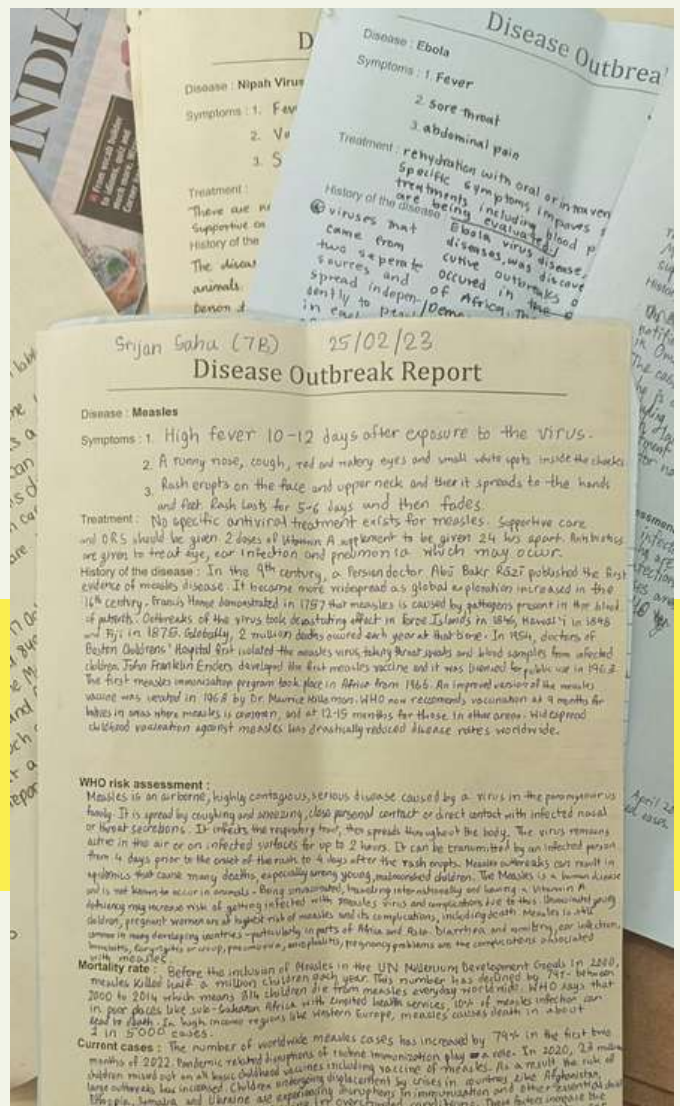 INDIA
Disease : Nipah Virus
Symptoms : 1. Fev
2. Vo
3. S
Treatment :
There are n
Supportive ca
History of the
The diseas
animals.
person t
Disease Outbrea
Disease : Ebola
Symptoms : 1. Fever
2. sore throat
3. abdominal pain
Treatment : rehydration with oral or intraven
Specific symptoms improves s
treatments including blood p
History of the disease are being evaluated.
viruses that Ebola virus disease,
came from diseases, was discove
two seperate cutive outbreaks o
sources and occured in the
spread indepen- of Africa. The
dently to peop /Demo
in each
Srijan Saha (7B) 25/02/23
Disease Outbreak Report
Disease : Measles
Symptoms : 1. High fever 10-12 days after exposure to the virus.
2. A runny nose, cough, red and watery eyes and small white spots inside the cheeks
3. Rash erupts on the face and upper neck and then it spreads to the hands
and feet. Rash lasts for 5-6 days and then fades.
Treatment : No specific antiviral treatment exists for measles. Supportive care
and ORS should be given. 2 doses of Vitamin A supplement to be given 24 hrs apart. Antibiotics
are given to treat eye, ear infection and pneumonia which may occur.
History of the disease : In the 9th century, a Persian doctor Abū Bakr Rāzī published the first
evidence of measles disease. It became more widespread as global exploration increased in the
16th century. Francis Home demonstrated in 1757 that measles is caused by pathogens present in the blood
of patients. Outbreaks of the virus took devastating effect in Faroe Islands in 1846, Hawai'i in 1848
and Fiji in 1875. Globally, 2 million deaths occured each year at that time. In 1954, doctors of
Boston Childrens' Hospital first isolated the measles virus, taking throat swabs and blood samples from infected
children. John Franklin Enders developed the first measles vaccine and it was licensed for public use in 1963.
The first measles immunization program took place in Africa from 1966. An improved version of the measles
vaccine was created in 1968 by Dr. Maurice Hilleman. WHO now recommends vaccination at 9 months for
babies in areas where measles is common, and at 12-15 months for those in other areas. Widespread
childhood vaccination against measles has drastically reduced disease rates worldwide.
WHO risk assessment :
Measles is an airborne, highly contagious, serious disease caused by a virus in the paramyxovirus
family. It is spread by coughing and sneezing, close personal contact or direct contact with infected nasal
or throat secretions. It infects the respiratory tract, then spreads throughout the body. The virus remains
active in the air or on infected surfaces for up to 2 hours. It can be transmitted by an infected person
from 4 days prior to the onset of the rash to 4 days after the rash erupts. Measles outbreaks can result in
epidemics that cause many deaths, especially among young, malnourished children. The Measles is a human disease
and is not known to occur in animals. Being unvaccinated, traveling internationally and having a Vitamin A
deficiency may increase risk of getting infected with measles virus and complications due to this. Unvaccinated young
children, pregnant women are at highest risk of measles and its complications, including death. Measles is still
common in many developing countries - particularly in parts of Africa and Asia. Diarrhea and vomiting, ear infection,
bronchitis, laryngitis or croup, pneumonia, encephalitis, pregnancy problems are the complications associated
with measles.
Mortality rate : Before the inclusion of Measles in the UN Millenium Development Goals in 2000,
measles killed half a million children each year. This number has declined by 79% between
2000 to 2014 which means 314 children die from measles everyday worldwide. WHO says that
in poor places like sub-Saharan Africa with limited health services, 10% of measles infection can
lead to death. In high income regions like Western Europe, measles causes death in about
1 in 5000 cases.
Current cases : The number of worldwide measles cases has increased by 79% in the first two
months of 2022. Pandemic related disruptions of routine immunization play a role. In 2020, 23 million
children missed out on all basic childhood vaccines including vaccine of measles. As a result the risk of
large outbreaks has increased. Children undergoing displacement by crises in countries like Afghanistan,
Ethiopia, Somalia and Ukraine are experiencing disruptions in immunization and other essential
overcrowded conditions. These factors increase the
April 20
ed cases